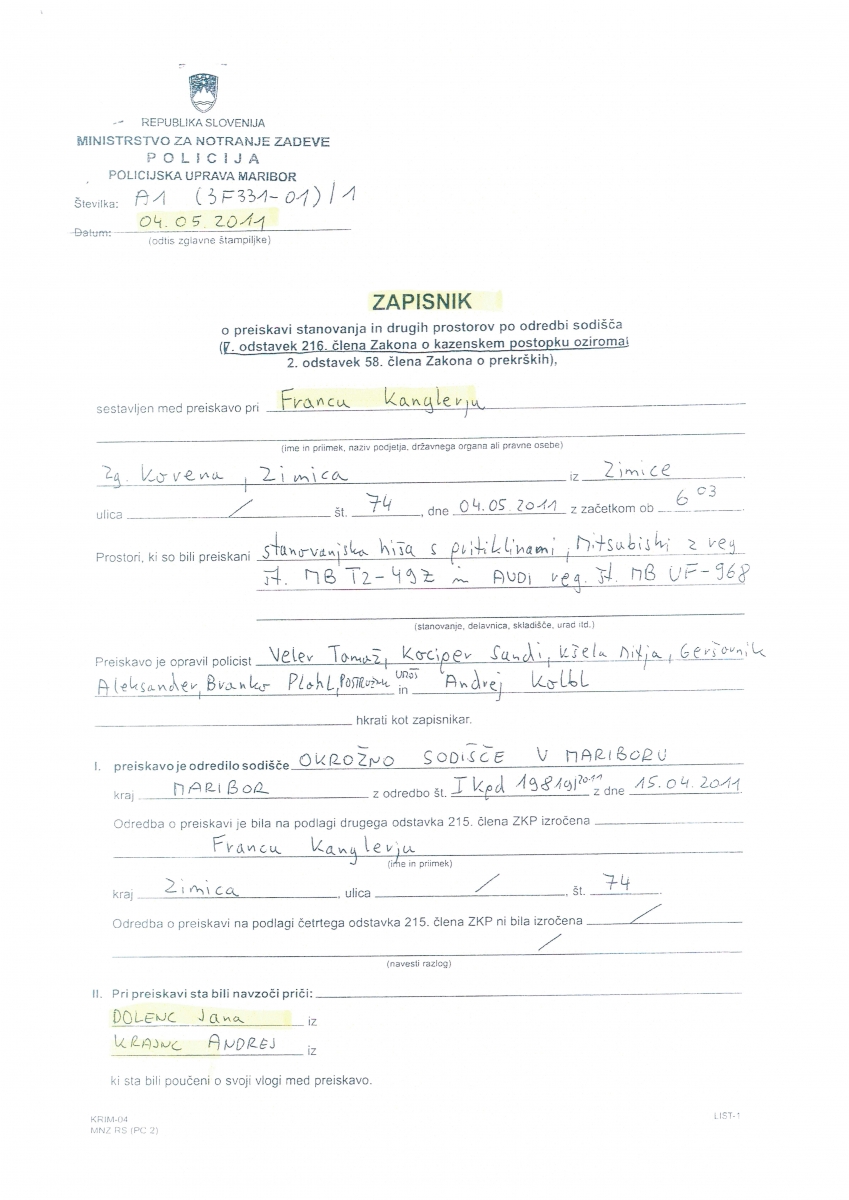 REPUBLIKA SLOVENIJA
MINISTRSTVO ZA NOTRANJE ZADEVE
POLICIJA
POLICIJSKA UPRAVA MARIBOR
Številka: A1 (3F331-01)/1
Datum: 04.05.2011
(odtis zglavne štampiljke)
ZAPISNIK
o preiskavi stanovanja in drugih prostorov po odredbi sodišča
(7. odstavek 216. člena Zakona o kazenskem postopku oziroma
2. odstavek 58. člena Zakona o prekrških),
sestavljen med preiskavo pri Francu Kanglerju
(ime in priimek, naziv podjetja, državnega organa ali pravne osebe)
Zg. Korena, Zimica iz Zimice
ulica / št. 74, dne 04.05.2011 z začetkom ob 6 03
Prostori, ki so bili preiskani stanovanjska hiša s pritiklinami, Mitsubishi z reg
št. MB T2-49Z in AUDI reg. št. MB UF-968
(stanovanje, delavnica, skladišče, urad itd.)
Preiskavo je opravil policist Veler Tomaž, Kociper Sandi, Kšela Mitja, Geršovnik
Aleksander, Branko Plohl, Uroš in Andrej Kolbl
hkrati kot zapisnikar.
I. preiskavo je odredilo sodišče OKROŽNO SODIŠČE V MARIBORU
kraj MARIBOR z odredbo št. I Kpd 19819/2011 z dne 15.04.2011
Odredba o preiskavi je bila na podlagi drugega odstavka 215. člena ZKP izročena
Francu Kanglerju
(ime in priimek)
kraj Zimica, ulica /, št. 74
Odredba o preiskavi na podlagi četrtega odstavka 215. člena ZKP ni bila izročena /
/
(navesti razlog)
II. Pri preiskavi sta bili navzoči priči:
DOLENC Jana iz
KRAJNC ANDREJ iz
ki sta bili poučeni o svoji vlogi med preiskavo.
KRIM-04
MNZ RS (PC 2)
LIST-1